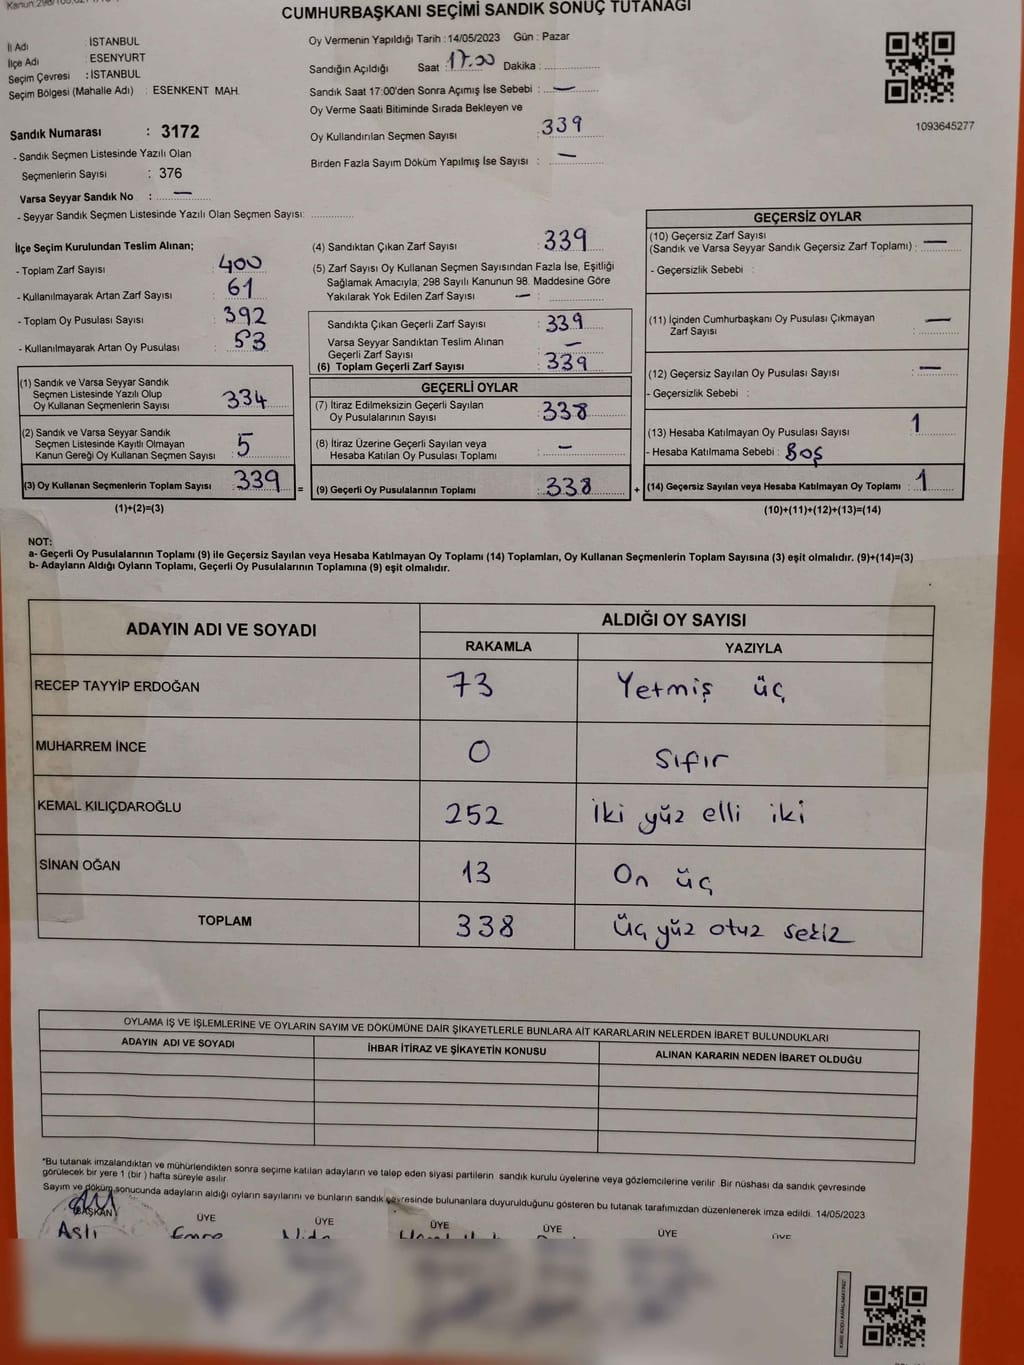 CUMHURBAŞKANI SEÇİMİ SANDIK SONUÇ TUTANAĞI
İl Adı : İSTANBUL
İlçe Adı : ESENYURT
Seçim Çevresi : İSTANBUL
Seçim Bölgesi (Mahalle Adı) : ESENKENT MAH.
Sandık Numarası : 3172
- Sandık Seçmen Listesinde Yazılı Olan
Seçmenlerin Sayısı : 376
Varsa Seyyar Sandık No : —
- Seyyar Sandık Seçmen Listesinde Yazılı Olan Seçmen Sayısı:
Oy Vermenin Yapıldığı Tarih : 14/05/2023 Gün : Pazar
Sandığın Açıldığı Saat 17.00 Dakika :
Sandık Saat 17:00'den Sonra Açımış İse Sebebi : —
Oy Verme Saati Bitiminde Sırada Bekleyen ve
Oy Kullandırılan Seçmen Sayısı 339
Birden Fazla Sayım Döküm Yapılmış İse Sayısı : —
1093645277
İlçe Seçim Kurulundan Teslim Alınan;
- Toplam Zarf Sayısı 400
- Kullanılmayarak Artan Zarf Sayısı 61
- Toplam Oy Pusulası Sayısı 392
- Kullanılmayarak Artan Oy Pusulası 53
(1) Sandık ve Varsa Seyyar Sandık
Seçmen Listesinde Yazılı Olup
Oy Kullanan Seçmenlerin Sayısı 334
(2) Sandık ve Varsa Seyyar Sandık
Seçmen Listesinde Kayıtlı Olmayan
Kanun Gereği Oy Kullanan Seçmen Sayısı 5
(3) Oy Kullanan Seçmenlerin Toplam Sayısı 339 =
(1)+(2)=(3)
(4) Sandıktan Çıkan Zarf Sayısı : 339
(5) Zarf Sayısı Oy Kullanan Seçmen Sayısından Fazla İse, Eşitliği
Sağlamak Amacıyla; 298 Sayılı Kanunun 98. Maddesine Göre
Yakılarak Yok Edilen Zarf Sayısı — :
Sandıkta Çıkan Geçerli Zarf Sayısı : 339
Varsa Seyyar Sandıktan Teslim Alınan
Geçerli Zarf Sayısı —
(6) Toplam Geçerli Zarf Sayısı : 339
GEÇERLİ OYLAR
(7) İtiraz Edilmeksizin Geçerli Sayılan
Oy Pusulalarının Sayısı : 338
(8) İtiraz Üzerine Geçerli Sayılan veya
Hesaba Katılan Oy Pusulası Toplamı : —
(9) Geçerli Oy Pusulalarının Toplamı : 338 +
GEÇERSİZ OYLAR
(10) Geçersiz Zarf Sayısı
(Sandık ve Varsa Seyyar Sandık Geçersiz Zarf Toplamı) : —
- Geçersizlik Sebebi :
(11) İçinden Cumhurbaşkanı Oy Pusulası Çıkmayan
Zarf Sayısı : —
(12) Geçersiz Sayılan Oy Pusulası Sayısı : —
- Geçersizlik Sebebi :
(13) Hesaba Katılmayan Oy Pusulası Sayısı : 1
- Hesaba Katılmama Sebebi : Boş
(14) Geçersiz Sayılan veya Hesaba Katılmayan Oy Toplamı : 1
(10)+(11)+(12)+(13)=(14)
NOT:
a- Geçerli Oy Pusulalarının Toplamı (9) ile Geçersiz Sayılan veya Hesaba Katılmayan Oy Toplamı (14) Toplamları, Oy Kullanan Seçmenlerin Toplam Sayısına (3) eşit olmalıdır. (9)+(14)=(3)
b- Adayların Aldığı Oyların Toplamı, Geçerli Oy Pusulalarının Toplamına (9) eşit olmalıdır.
ADAYIN ADI VE SOYADI ALDIĞI OY SAYISI
RAKAMLA YAZIYLA
RECEP TAYYİP ERDOĞAN 73 Yetmiş üç
MUHARREM İNCE 0 Sıfır
KEMAL KILIÇDAROĞLU 252 İki yüz elli iki
SİNAN OĞAN 13 On üç
TOPLAM 338 Üç yüz otuz sekiz
OYLAMA İŞ VE İŞLEMLERİNE VE OYLARIN SAYIM VE DÖKÜMÜNE DAİR ŞİKAYETLERLE BUNLARA AİT KARARLARIN NELERDEN İBARET BULUNDUKLARI
ADAYIN ADI VE SOYADI İHBAR İTİRAZ VE ŞİKAYETİN KONUSU ALINAN KARARIN NEDEN İBARET OLDUĞU
*Bu tutanak imzalandıktan ve mühürlendikten sonra seçime katılan adayların ve talep eden siyasi partilerin sandık kurulu üyelerine veya gözlemcilerine verilir. Bir nüshası da sandık çevresinde
görülecek bir yere 1 (bir ) hafta süreyle asılır.
Sayım ve döküm sonucunda adayların aldığı oyların sayılarını ve bunların sandık çevresinde bulunanlara duyurulduğunu gösteren bu tutanak tarafımızdan düzenlenerek imza edildi. 14/05/2023
BAŞKAN ÜYE ÜYE ÜYE ÜYE ÜYE ÜYE
Aslı Emre